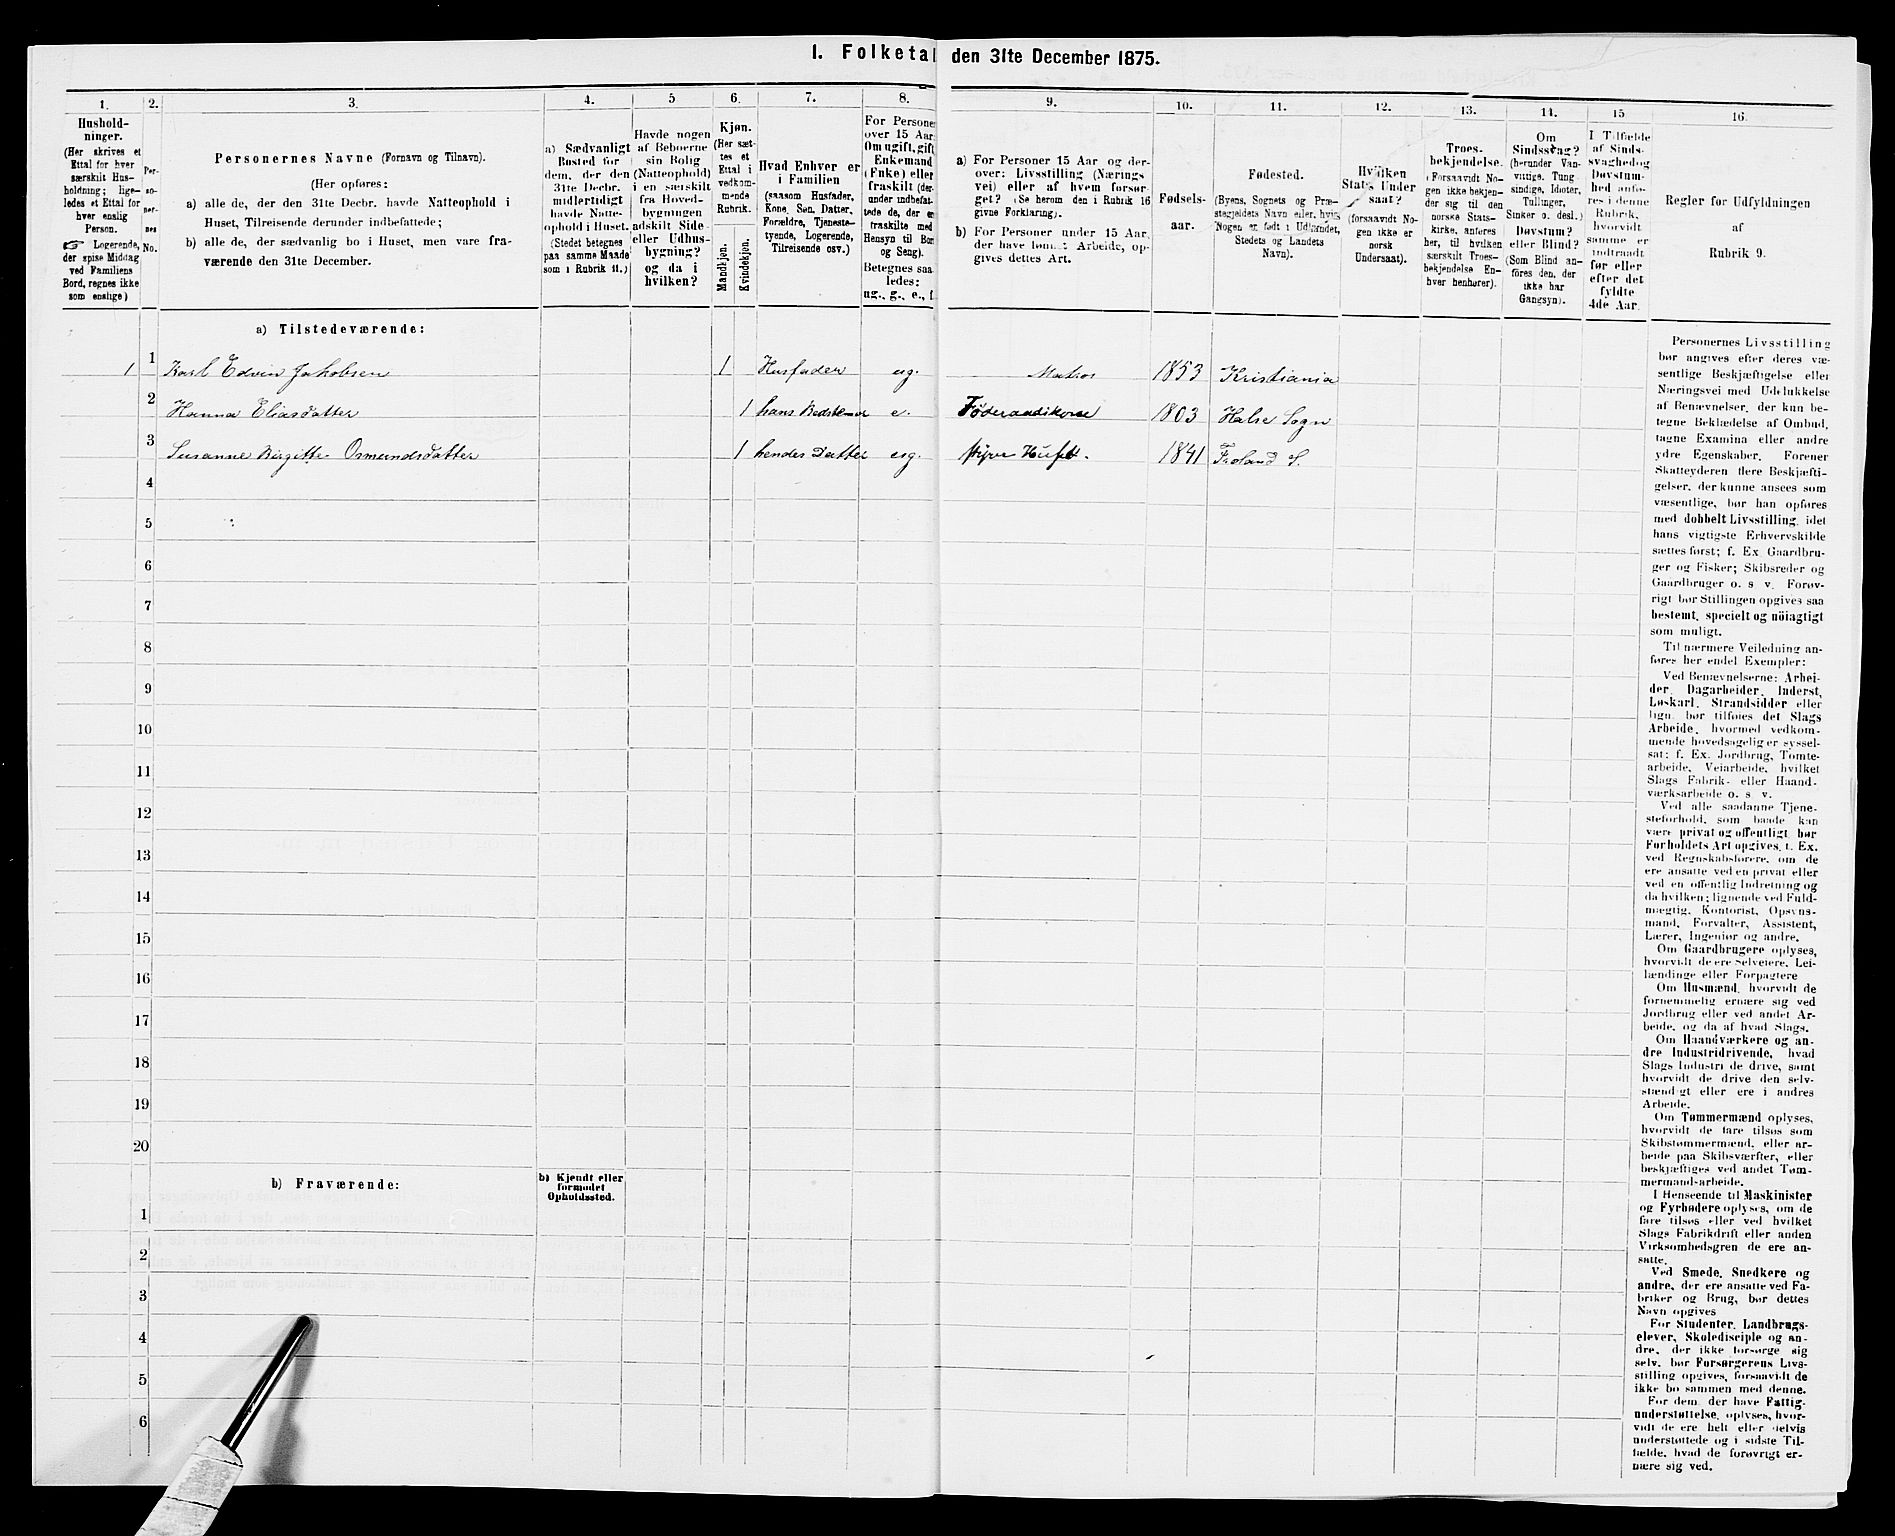 I. Folketal den 31te December 1875.
1.
Hushold-
ninger.
(Her skrives et
Ettal for hver
særskilt Hus-
holdning; lige-
ledes et Ettal for
hver enslig
Person.
☞ Logerende,
der spise Middag
ved Familiens
Bord, regnes ikke
som enslige)
2.
Per-
so-
ner-
nes
No.
3.
Personernes Navne (Fornavn og Tilnavn).
(Her opføres:
a) alle de, der den 31te Decbr. havde Natteophold i
Huset, Tilreisende derunder indbefattede;
b) alle de, der sædvanlig bo i Huset, men vare fra-
værende den 31te December.
4.
a) Sædvanligt
Bosted for
dem, der den
31te Decbr.
midlertidigt
havde Natte-
ophold i Huset.
(Stedet betegnes
paa samme Maade
som i Rubrik 11.)
5
Havde nogen
af Beboerne
sin Bolig
(Natteophold)
i en særskilt
fra Hoved-
bygningen
adskilt Side-
eller Udhus-
bygning?
og da i
hvilken?
6.
Kjøn.
(Her sæt-
tes et
Ettal i
vedkom-
mende
Rubrik.
Mandkjøn.
Kvindekjøn.
7.
Hvad Enhver er
i Familien
(saasom Husfader,
Kone, Søn, Datter,
Forældre, Tjeneste-
tyende, Logerende,
Tilreisende osv.)
8.
For Persone
over 15 Aar
Om ugift, gift
Enkemand
(Enke) eller
fraskilt (der-
under indbefat-
tede de, der er
fraskilte med
Hensyn til Bor
og Seng).
Betegnes saa
ledes:
ug., g., e., f.
9.
a) For Personer 15 Aar og der-
over: Livsstilling (Nærings
vei) eller af hvem forsør-
get? (Se herom den i Rubrik 16
givne Forklaring).
b) For Personer under 15 Aar,
der have lønnet Arbeide, op-
gives dettes Art.
10.
Fødsels-
aar.
11.
Fødested.
(Byens, Sognets og Præ-
stegjeldets Navn eller, hvis
Nogen er født i Udlandet,
Stedets og Landets
Navn).
12.
Hvilken
Stats Under
saat?
(forsaavidt No-
gen ikke er
norsk
Undersaat).
13.
Troes-
bekjendelse.
(Forsaavidt No-
gen ikke bekjen-
der sig til den
norske Stats-
kirke, anføres
her, til hvilken
særskilt Troes-
bekjendelse En-
hver henhører).
14.
Om
Sindssvag?
(herunder Van-
vittige, Tung
sindige, Idioter,
Tullinger,
Sinker o. desl.)
Døvstum?
eller Blind?
(Som Blind an-
føres den, der
ikke har
Gangsyn).
15
I Tilfælde
af Sinds-
svaghed og
Døvstum-
hed anfø-
res i denne
Rubrik,
hvorvidt
samme er
indtraadt
før eller
efter det
fyldte
4de Aar.
16.
Regler for Udfyldningen
af
Rubrik 9.
a) Tilstedeværende:
1 1 Karl Edvin Jakobsen 1 Husfader ug. Matros 1853 Kristiania
2 Hanna Eliasdatter 1 hans Bedstemor e. Föderaadskone 1803 Halse Sogn
3 Susanne Birgitte Osmundsdatter 1 hendes Datter ug. 1841 Froland S.
4
5
6
7
8
9
10
11
12
13
14
15
16
17
18
19
20
b) Fraværende:
b) Kjendt eller
formodet
Opholdssted.
1
2
3
4
5
6
Personernes Livsstilling
bør angives efter deres væ-
sentlige Beskjæftigelse eller
Næringsvei med Udelukkelse
af Benævnelser, der kun be-
tegne Beklædelse af Ombud,
tagne Examina eller andre
ydre Egenskaber. Forener
Skatteyderen flere Beskjæfti-
gelser, der kunne ansees som
væsentlige, bør han opføres
med dobbelt Livsstilling, idet
hans vigtigste Erhvervskilde
sættes først; f. Ex. Gaardbru-
ger og Fisker; Skibsreder og
Gaardbruger o. s v. Forøv-
rigt bør Stillingen opgives saa
bestemt, specielt og nöiagtigt
som muligt.
Til nærmere Veiledning an-
føres her endel Exempler:
Ved Benævnelserne: Arbei-
der, Dagarbeider, Inderst,
Løskarl, Strandsidder eller
lign. bør tilføies det Slags
Arbeide, hvormed vedkom-
mende hovedsagelig er syssel-
sat; f. Ex. Jordbrug, Tomte-
arbeide, Veiarbeide, hvilket
Slags Fabrik- eller Haand-
værksarbeide o. s v.
Ved alle saadanne Tjene-
steforhold, som baade kan
være privat og offentligt, bør
Forholdets Art opgives, f. Ex.
ved Regnskabsførere, om de
ere ansatte ved en privat eller
ved en offentlig Indretning og
da hvilken; lignende ved Fuld-
mægtig, Kontorist, Opsyns-
mand, Forvalter, Assistent,
Lærer, Ingeniør og andre.
Om Gaardbrugere oplyses,
hvorvidt de ere Selveiere, Lei-
lændinge eller Forpagtere
Om Husmænd, hvorvidt de
fornemmelig ernære sig ved
Jordbrug eller ved andet Ar-
beide, og da af hvad Slags.
Om Haandværkere og an-
dre Industridrivende, hvad
Slags Industri de drive, samt
hvorvidt de drive den selv-
stændigt eller ere i andres
Arbeide.
Om Tømmermænd oplyses,
hvorvidt de fare tilsøs som
Skibstømmermænd, eller ar-
beide paa Skibsværfter, eller
beskjæftiges ved andet Tøm-
mermandsarbeide.
I Henseende til Maskinister
og Fyrbødere oplyses, om de
fare tilsøs eller ved hvilket
Slags Fabrikdrift eller anden
Virksomhedsgren de ere an-
satte.
Ved Smede, Snedkere og
andre, der ere ansatte ved Fa-
briker og Brug, bør dettes
Navn opgives
For Studenter, Landbrugs-
elever, Skoledisciple og an-
dre, der ikke forsørge sig
selv, bør Forsørgerens Livs-
stilling opgives, forsaavidt de
ikke bo sammen med denne.
For dem, der have Fattig-
understøttelse, oplyses, hvor-
vidt de ere helt eller delvis
understøttede og i sidste Til-
fælde, hvad de forøvrigt er-
nære sig ved.